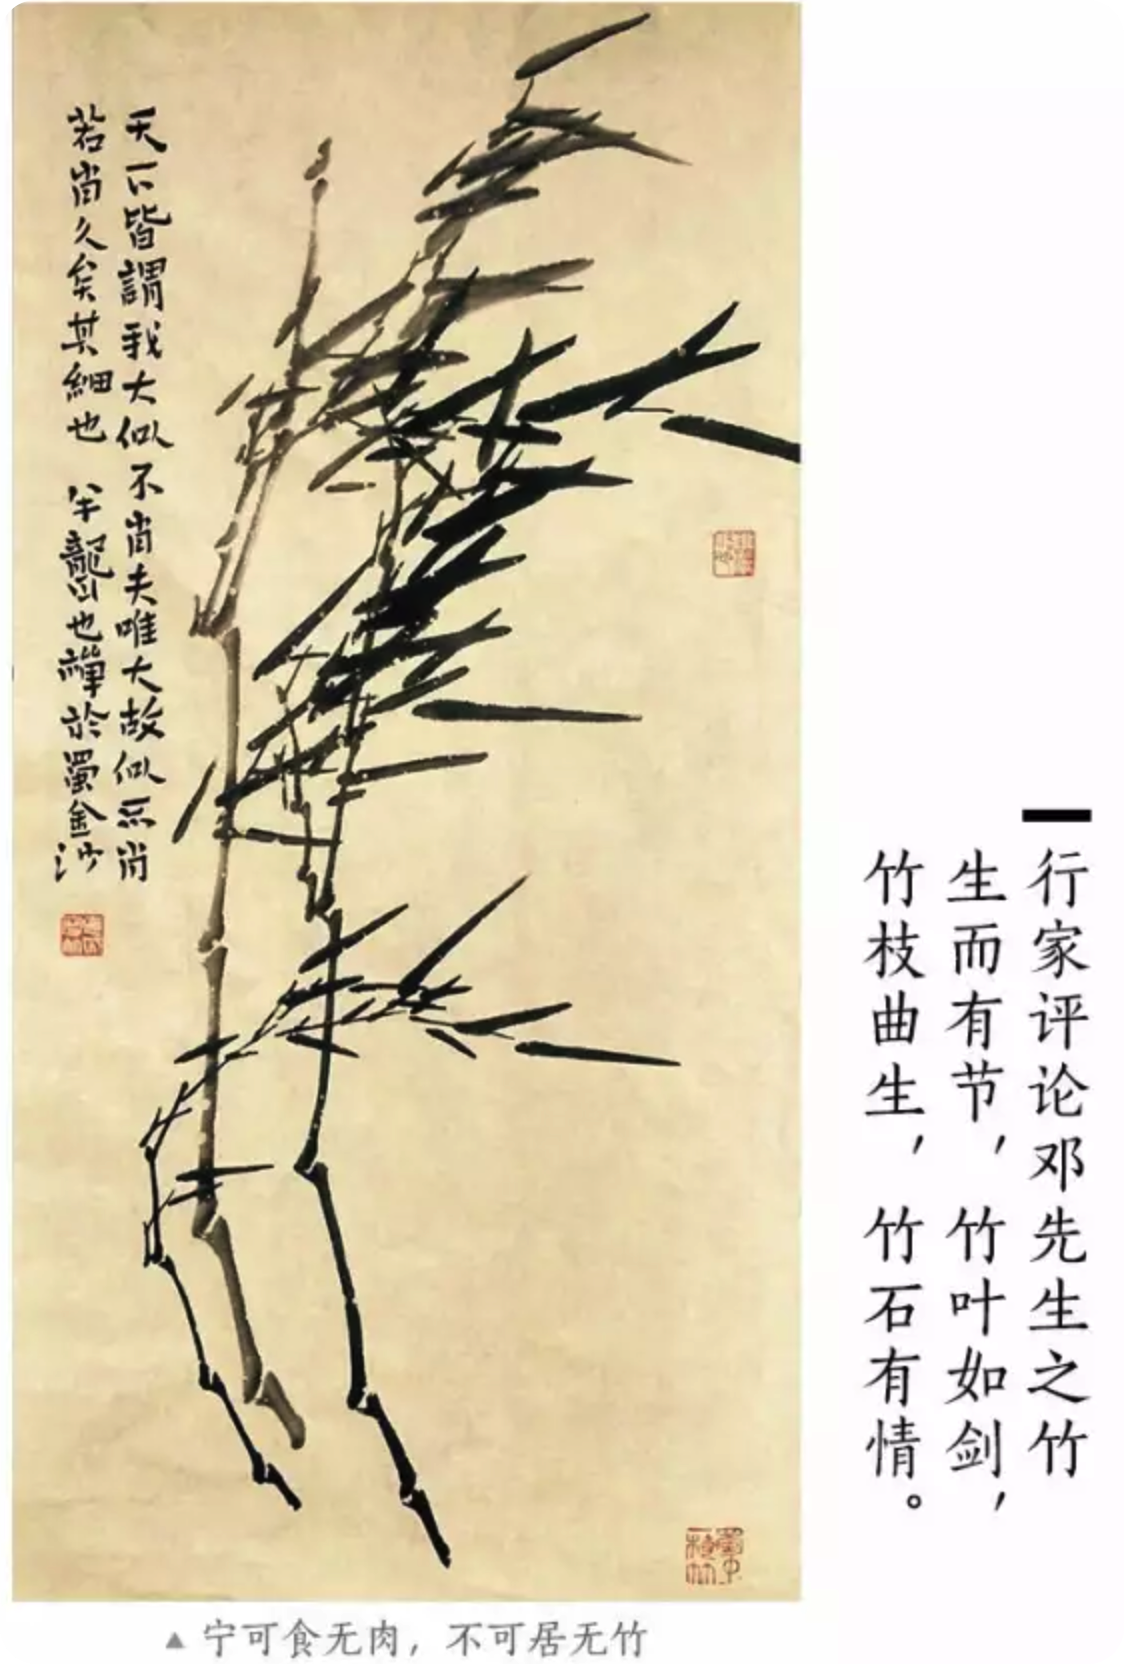 天下皆謂我大似不肖夫唯大故似不肖
若肖久矣其細也 半也禪於蜀金沙
行家评论邓先生之竹
生而有节，竹叶如剑，
竹枝曲生，竹石有情。
▲ 宁可食无肉，不可居无竹